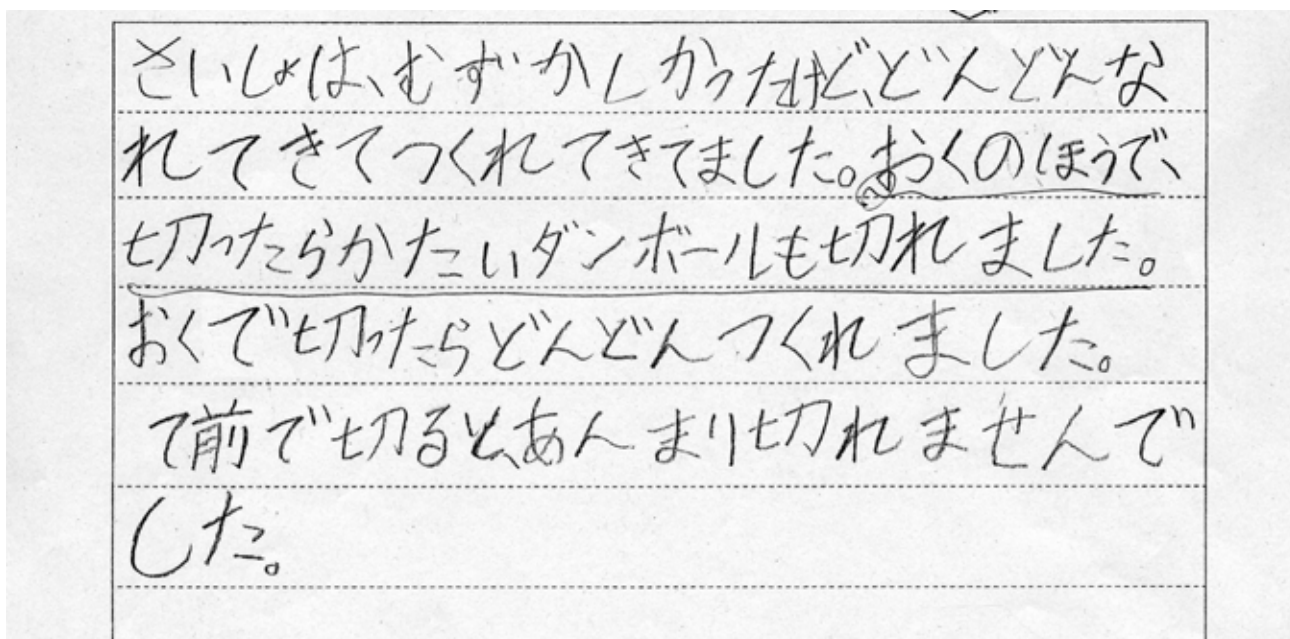 さいしょは、むずかしかったけど、どんどんな
れてきてつくれてきてました。おくのほうで、
切ったらかたいダンボールも切れました。
おくで切ったらどんどんつくれました。
て前で切ると、あんまり切れませんで
した。